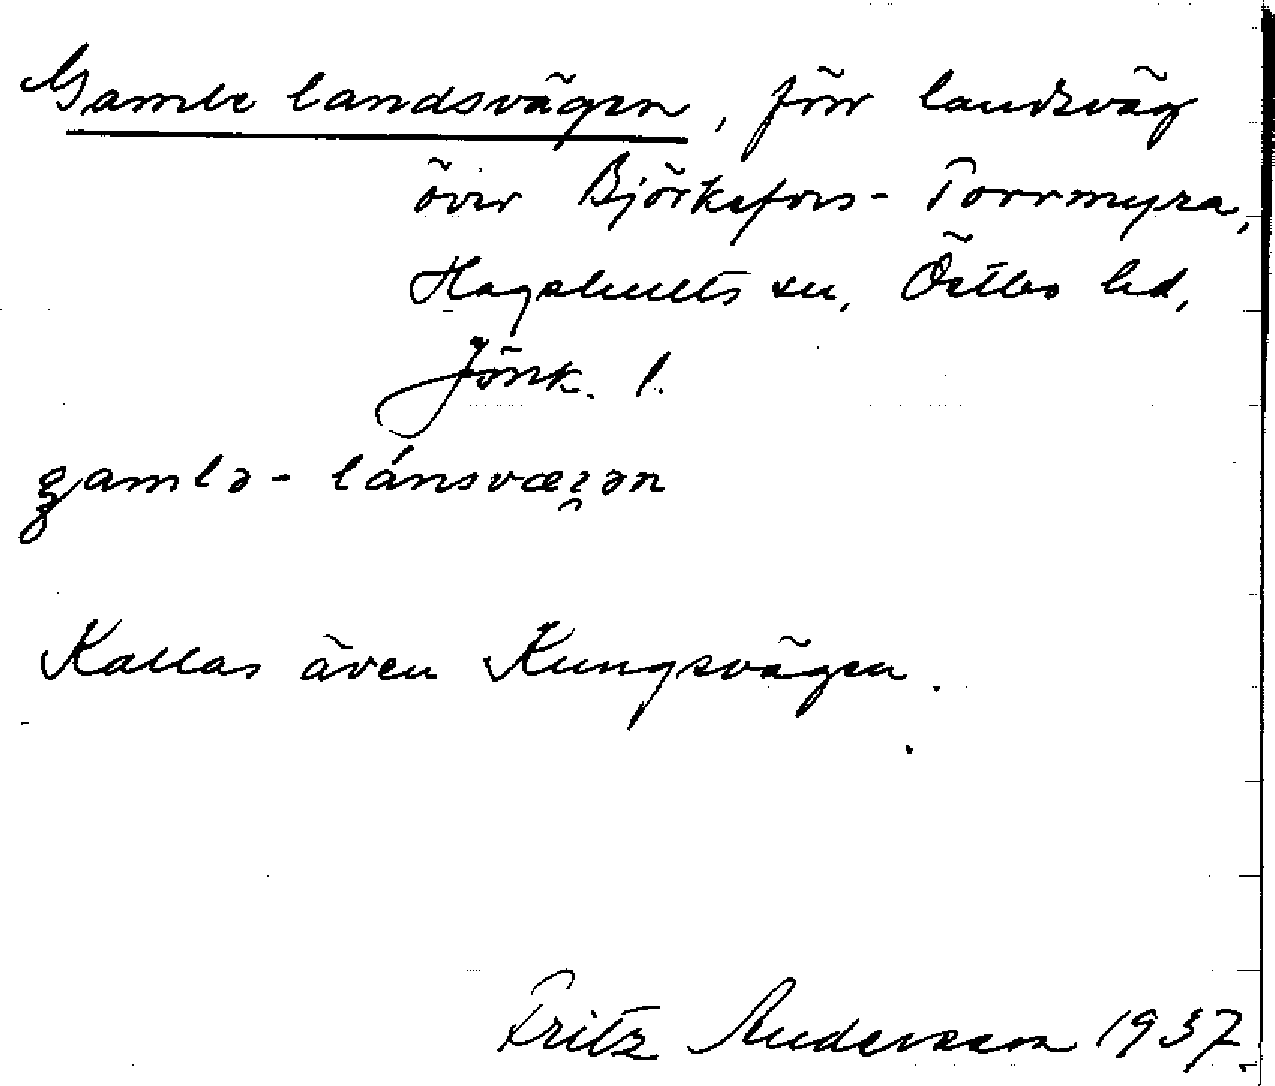 Gamle landsvägen, förr landsväg
över Björkefors - Torrmyra,
Hagshults sn, Östbo hd,
Jönk. l.
gamlə - lánsvæꝛ̯ən
Kallas även Kungsvägen.
Fritz Andersson 1937.